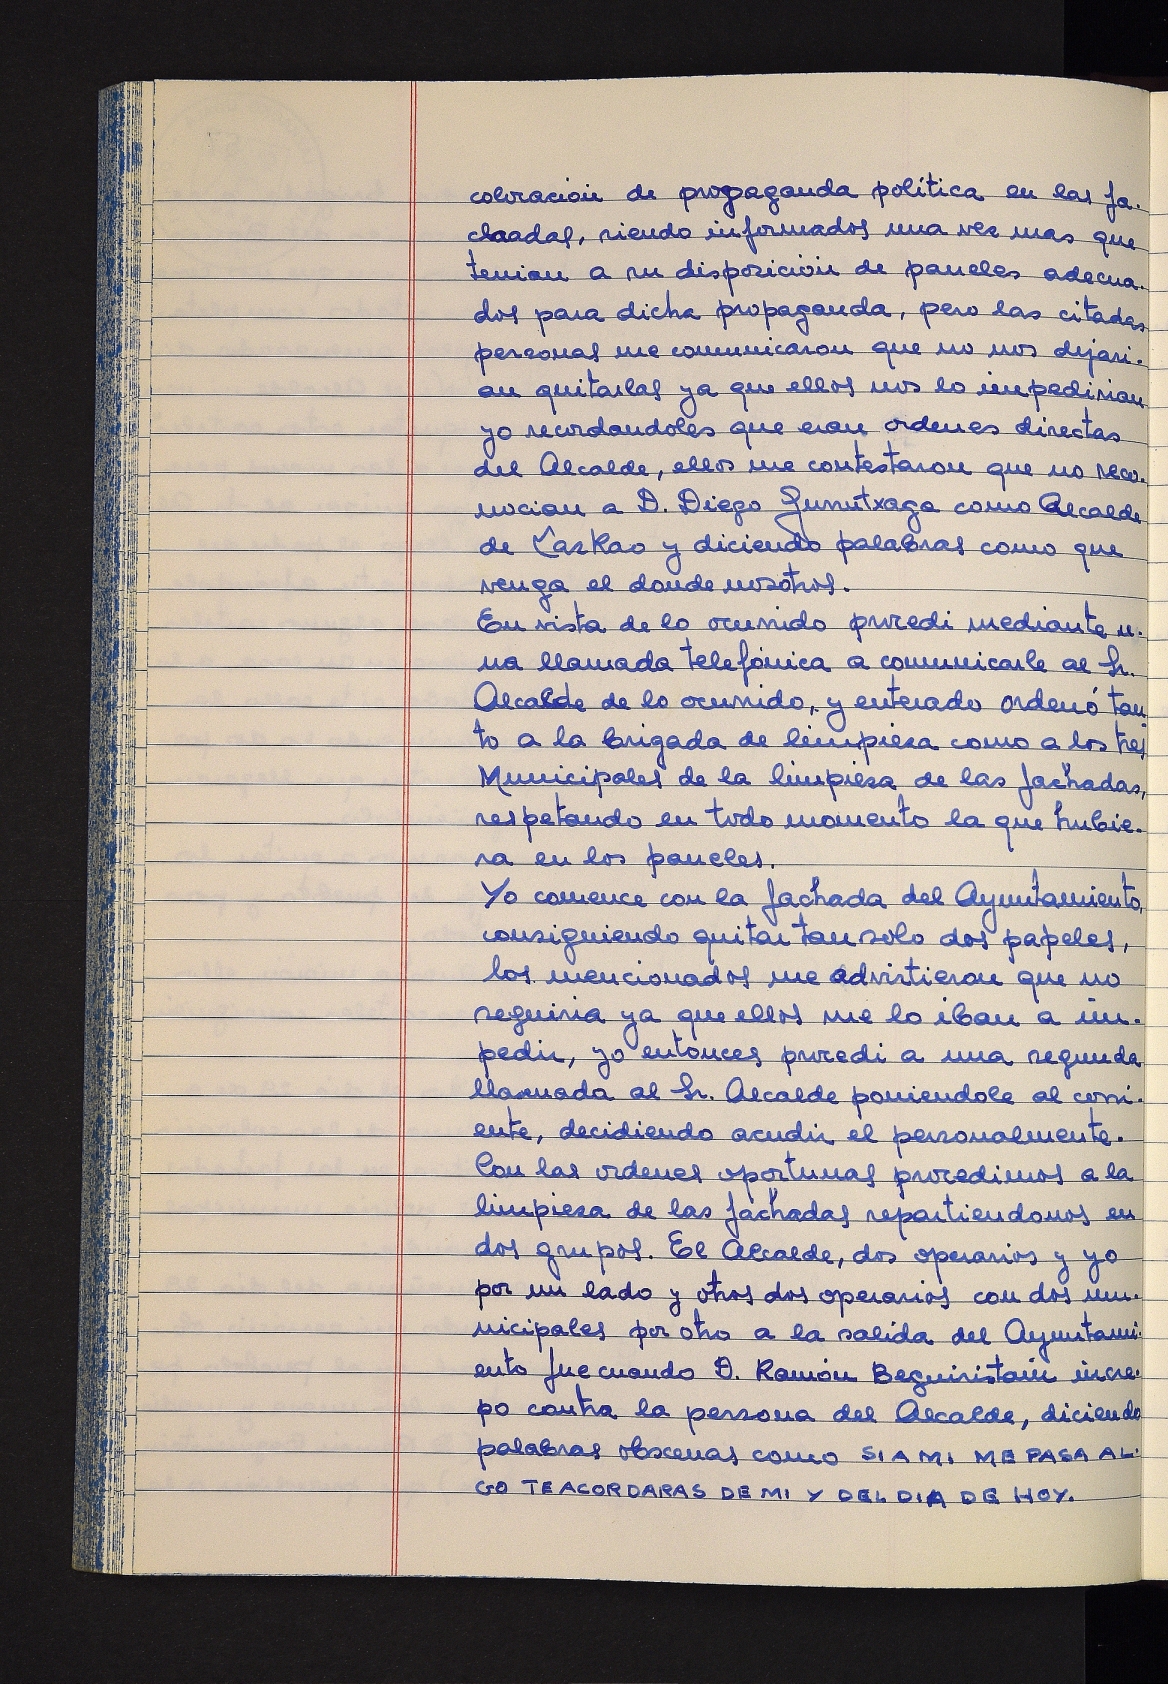 coloracioin de propaganda política en las fa-
chaadas, siendo informados una vez mas que
tenian a su disposicioin de paneles adecua-
dos para dicha propaganda, pero las citadas
personas me comunicaron que no nos dejari-
an quitarlas ya que ellos nos lo inpedirian
yo recordandoles que eran ordenes directas
del Alcalde, ellos me contestaron que no reco-
nocian a D. Diego como Alcalde
de Lazkao y diciendo palabras como que
venga el donde nosotros.
En vista de lo ocurrido procedi mediante u-
na llamada telefónica a comunicarle al Sr.
Alcalde de lo ocurrido, y enterado ordenó tan
to a la brigada de limpieza como a los tres
Municipales de la limpieza de las fachadas,
respetando en todo momento la que hubie-
ra en los paneles.
Yo comence con la fachada del Ayuntamiento,
consiguiendo quitar tan solo dos papeles,
los mencionados me advirtieron que no
seguiria ya que ellos me lo iban a im-
pedir, yo entonces procedi a una segunda
llamada al Sr. Alcalde poniendole al corri-
ente, decidiendo acudir el personalmente.
Con las ordenes oportunas procedimos a la
limpieza de las fachadas repartiendonos en
dos grupos. El Alcalde, dos operarios y yo
por un lado y otros dos operarios con dos mu-
nicipales por otro a la salida del Ayuntami-
ento fue cuando D. Ramón Beguiristain incre-
po contra la persona del Alcalde, diciendo
palabras obscenas como SI A MI ME PASA AL-
GO TE ACORDARAS DE MI Y DEL DIA DE HOY.